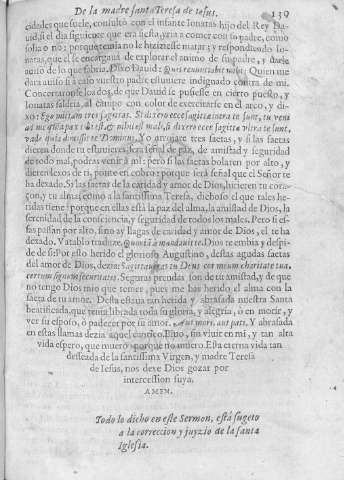 De la madre santa Teresa de Iesus. 139
cidades que suele, consultó con el infante Ionatas hijo del Rey Da-
uid, si el dia siguiente que era fiesta, yria a comer con su padre, como
solia o no: porque temia no le hiziesse matar; y respondiendo Io-
natas, que el se encargaua de explorar el animo de su padre, y darle
auiso de lo que sabria. Dixo Dauid: Quis renuntiabit mihi? Quien me
dara auiso si a caso vuestro padre estuuiere indiguado contra de mi.
Concertarose los dos, de que Dauid se pusiesse en cierto puesto, y
Ionatas saldria, al campo con color de exercitarse en el arco, y di-
xo: Ego mittam tres sagittas. Si dixero ecce sagittæ intra te sunt, tu veni
ad me quia pax tibi est, & nihil est mali, si dixero ecce sagittæ vltra te sunt,
vade quia dimisit te Dominus. Yo arrojare tres saetas, y si las saetas
dieren donde tu estuuieres, sera señal de paz, de amistad y seguridad
de todo mal, podras venir à mi: pero si las saetas bolaren por alto, y
dieren lexos de ti, ponte en cobro: porque sera señal que el Señor te
ha dexado. Si las saetas de la caridad y amor de Dios, hirieren tu cora-
çon, y tu alma, como a la santissima Teresa, dichoso el que tales he-
ridas tiene: porque en ellas está la paz del alma, la amistad de Dios, la
serenidad de la consciencia, y seguridad de todos los males. Pero si es-
sas passan por alto, sino ay llagas de caridad y amor de Dios, el te ha
dexado. Vatablo traduze. Quoniã amandauit te. Dios te embia y despi-
de de si. Por esto herido el glorioso Augustino, destas agudas saetas
del amor de Dios, dezia: Sagittaueras tu Deus cor meum charitate tua,
certum signum securitatis. Seguras prendas son de tu amistad, y de que
no tengo Dios mio que temer, pues me has herido el alma con la
saeta de tu amor. Desta estaua tan herida y abrasada nuestra Santa
beatificada, que tenia librada toda su gloria, y alegria, ô en morir, y
ver su esposo, ô padecer por su amor. Aut mori, aut pati. Y abrasada
en estas llamas dezia aquel cantico. Biuo, sin viuir en mi, y tan alta
vida espero, que muero porque no muero. Esta eterna vida tan
desseada de la santissima Virgen, y madre Teresa
de Iesus, nos deve Dios gozar por
intercession suya.
AMEN.
Todo lo dicho en este Sermon, está sugeto
a la correccion y juyzio de la santa
Iglesia.